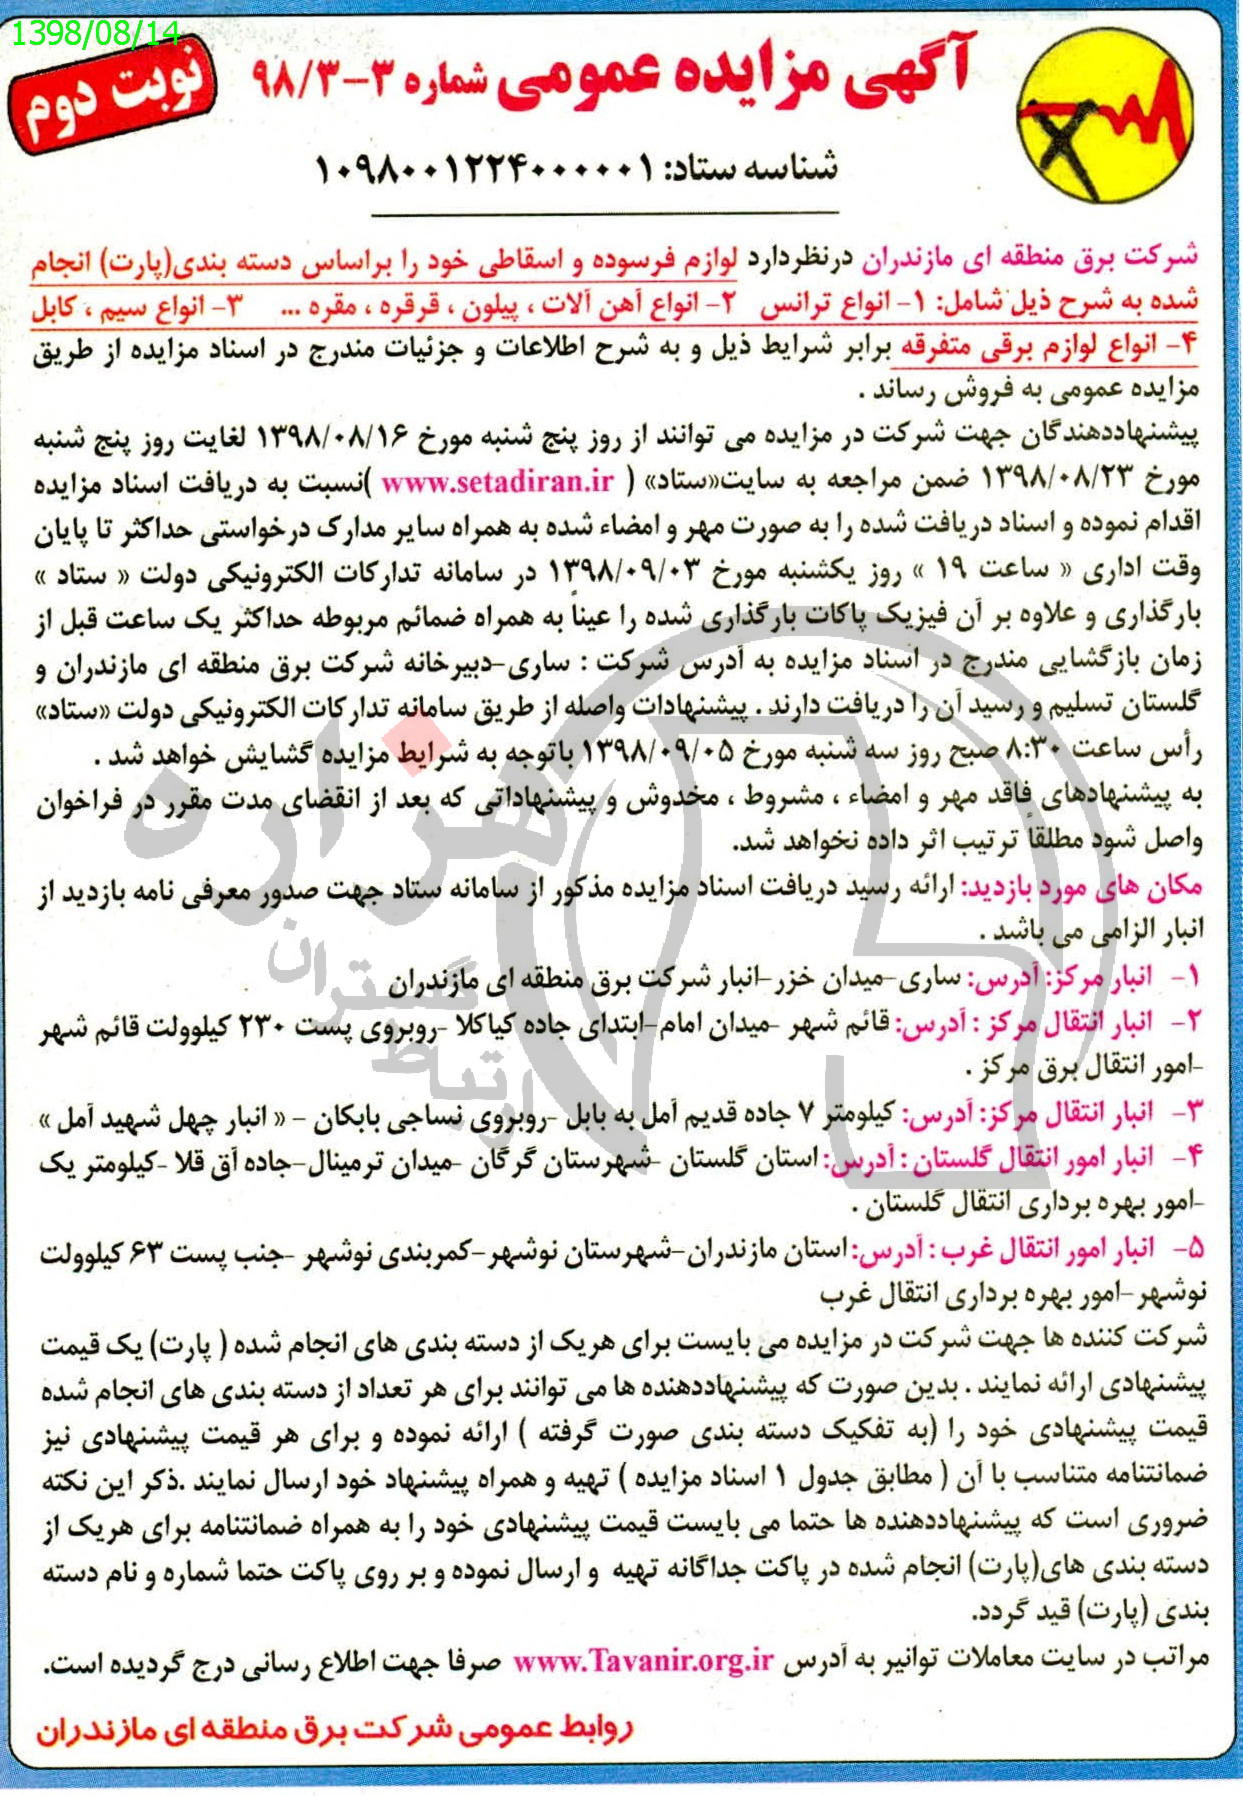 1398/08/14
نوبت دوم
آگهی مزایده عمومی شماره ۳-۹۸/۳
شناسه ستاد: ۱۰۹۸۰۰۱۲۲۴۰۰۰۰۰۱
شرکت برق منطقه ای مازندران درنظردارد لوازم فرسوده و اسقاطی خود را براساس دسته بندی(پارت) انجام
شده به شرح ذیل شامل: ۱- انواع ترانس ۲- انواع آهن آلات ، پیلون ، قرقره ، مقره ... ۳- انواع سیم ، کابل
۴- انواع لوازم برقی متفرقه برابر شرایط ذیل و به شرح اطلاعات و جزئیات مندرج در اسناد مزایده از طریق
مزایده عمومی به فروش رساند .
پیشنهاددهندگان جهت شرکت در مزایده می توانند از روز پنج شنبه مورخ ۱۳۹۸/۰۸/۱۶ لغایت روز پنج شنبه
مورخ ۱۳۹۸/۰۸/۲۳ ضمن مراجعه به سایت«ستاد» ( www.setadiran.ir )نسبت به دریافت اسناد مزایده
اقدام نموده و اسناد دریافت شده را به صورت مهر و امضاء شده به همراه سایر مدارک درخواستی حداکثر تا پایان
وقت اداری « ساعت ۱۹ » روز یکشنبه مورخ ۱۳۹۸/۰۹/۰۳ در سامانه تدارکات الکترونیکی دولت « ستاد »
بارگذاری و علاوه بر آن فیزیک پاکات بارگذاری شده را عیناً به همراه ضمائم مربوطه حداکثر یک ساعت قبل از
زمان بازگشایی مندرج در اسناد مزایده به آدرس شرکت : ساری-دبیرخانه شرکت برق منطقه ای مازندران و
گلستان تسلیم و رسید آن را دریافت دارند . پیشنهادات واصله از طریق سامانه تدارکات الکترونیکی دولت «ستاد»
رأس ساعت ۸:۳۰ صبح روز سه شنبه مورخ ۱۳۹۸/۰۹/۰۵ باتوجه به شرایط مزایده گشایش خواهد شد .
به پیشنهادهای فاقد مهر و امضاء ، مشروط ، مخدوش و پیشنهاداتی که بعد از انقضای مدت مقرر در فراخوان
واصل شود مطلقاً ترتیب اثر داده نخواهد شد.
مکان های مورد بازدید: ارائه رسید دریافت اسناد مزایده مذکور از سامانه ستاد جهت صدور معرفی نامه بازدید از
انبار الزامی می باشد .
۱- انبار مرکز: آدرس: ساری-میدان خزر-انبار شرکت برق منطقه ای مازندران
۲- انبار انتقال مرکز : آدرس: قائم شهر -میدان امام-ابتدای جاده کیاکلا -روبروی پست ۲۳۰ کیلوولت قائم شهر
-امور انتقال برق مرکز .
۳- انبار انتقال مرکز: آدرس: کیلومتر ۷ جاده قدیم آمل به بابل -روبروی نساجی بابکان - « انبار چهل شهید آمل »
۴- انبار امور انتقال گلستان : آدرس: استان گلستان -شهرستان گرگان -میدان ترمینال-جاده آق قلا -کیلومتر یک
-امور بهره برداری انتقال گلستان .
۵- انبار امور انتقال غرب : آدرس: استان مازندران-شهرستان نوشهر-کمربندی نوشهر -جنب پست ۶۳ کیلوولت
نوشهر-امور بهره برداری انتقال غرب
شرکت کننده ها جهت شرکت در مزایده می بایست برای هریک از دسته بندی های انجام شده ( پارت) یک قیمت
پیشنهادی ارائه نمایند . بدین صورت که پیشنهاددهنده ها می توانند برای هر تعداد از دسته بندی های انجام شده
قیمت پیشنهادی خود را (به تفکیک دسته بندی صورت گرفته ) ارائه نموده و برای هر قیمت پیشنهادی نیز
ضمانتنامه متناسب با آن ( مطابق جدول ۱ اسناد مزایده ) تهیه و همراه پیشنهاد خود ارسال نمایند .ذکر این نکته
ضروری است که پیشنهاددهنده ها حتما می بایست قیمت پیشنهادی خود را به همراه ضمانتنامه برای هریک از
دسته بندی های(پارت) انجام شده در پاکت جداگانه تهیه و ارسال نموده و بر روی پاکت حتما شماره و نام دسته
بندی (پارت) قید گردد.
مراتب در سایت معاملات توانیر به آدرس www.Tavanir.org.ir صرفا جهت اطلاع رسانی درج گردیده است.
روابط عمومی شرکت برق منطقه ای مازندران
هزاره
گستران
ارتباط